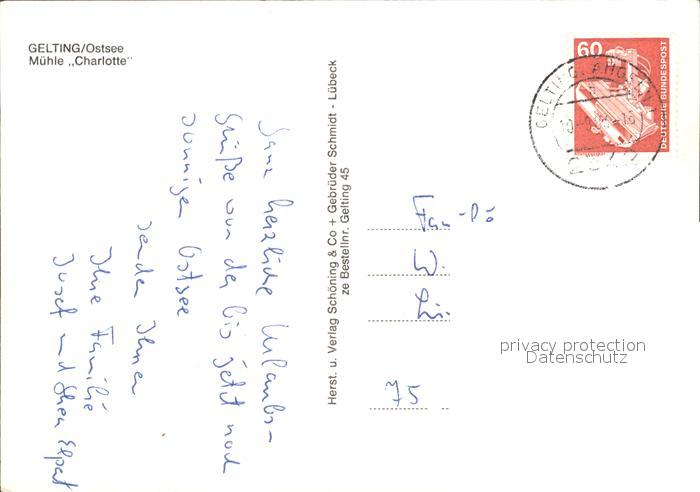 GELTING/Ostsee
Mühle „Charlotte"
Ganz herzliche Urlaubs-
Grüße von der bis jetzt noch
sonnigen Ostsee
senden Ihnen
Ihre Familie
Josef und
Herst. u. Verlag Schöning & Co + Gebrüder Schmidt - Lübeck
ze Bestellnr. Gelting 45
60
DEUTSCHE BUNDESPOST
GELTING, ANGELN
Fa
75
privacy protection
Datenschutz